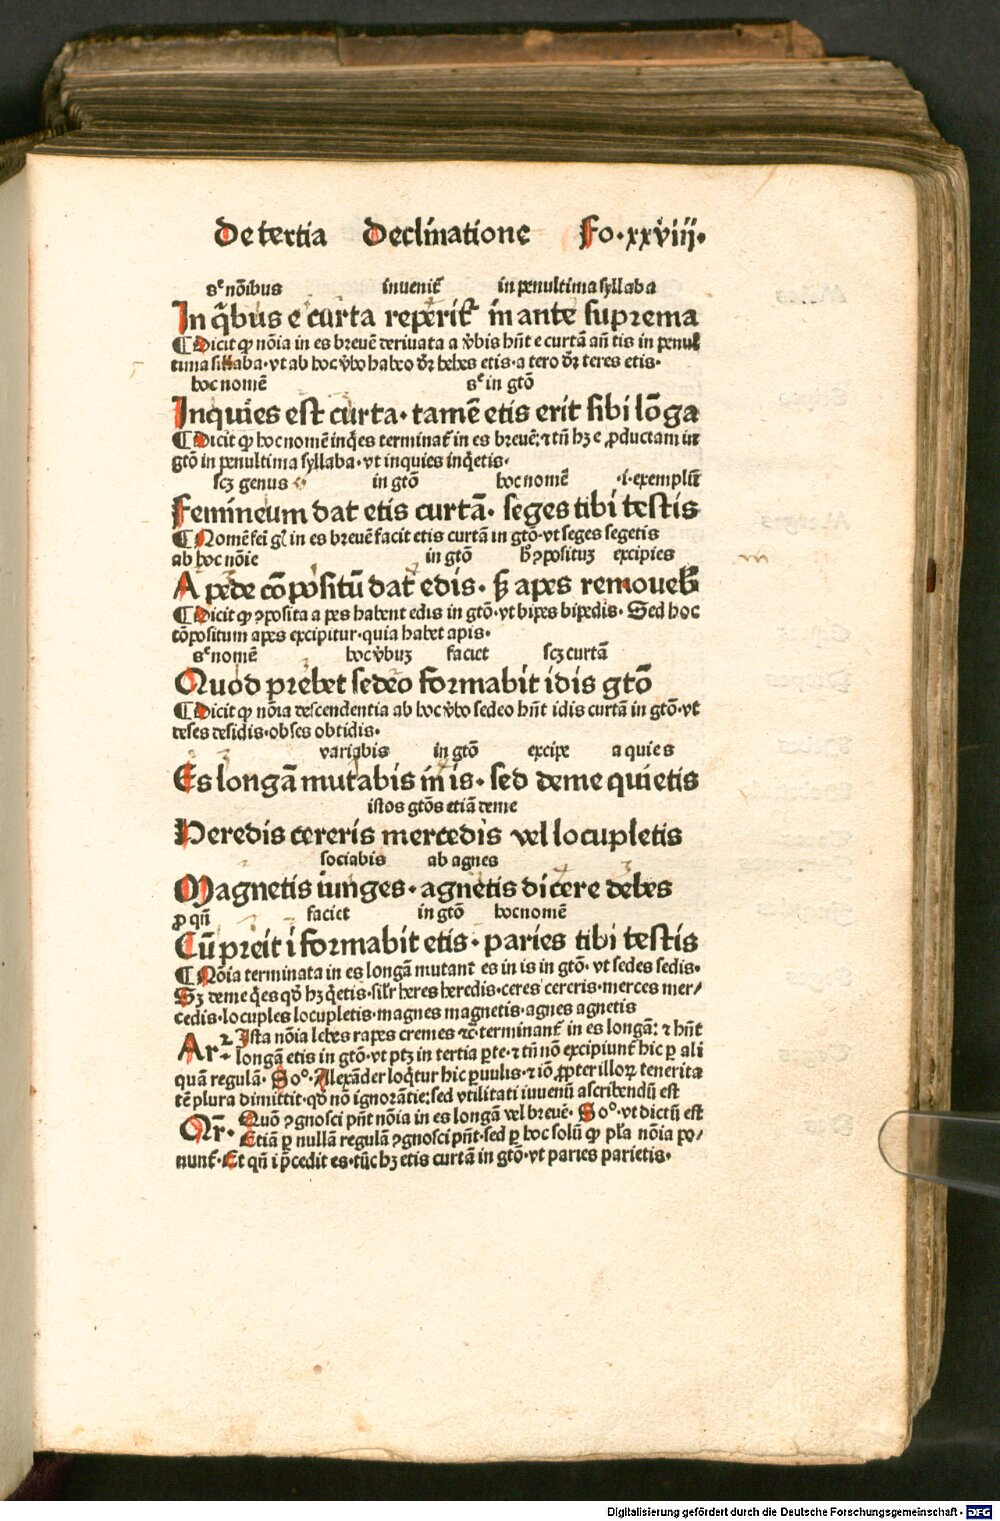 De tertia Declinatione Fo.xxviij.
sꝫ nōibus inuenit᷑ in penultima syllaba
In q̈bus e curta reperit᷑ in ante suprema
¶ Dicit ꝙ nōia in es breuē deriuata a v̄bis hn̄t e curtā an̄ tis in penul
tima sillaba.vt ab hoc v̄bo habeo dr̄ hebes etis.a tero dr̄ teres etis.
hoc nomē sꝫ in gtō
Inquies est curta.tamē etis erit sibi lōga
¶ Dicit ꝙ hoc nomē inq̇es terminat᷑ in es breuē:⁊ tn̄ hꝫ e ꝓductam in
gtō in penultima syllaba.vt inquies inq̇etis.
scꝫ genus in gtō hoc nomē .i.exemplū
Femineum dat etis curtā. seges tibi testis
¶ Nomē fei gꝉ in es breuē facit etis curtā in gtō.vt seges segetis
ab hoc nōie in gtō h̄ ꝯpositūꝫ excipies
A pede cōpositū dat edis. sꝫ apes remouebꝰ
¶ Dicit ꝙ ꝯposita a pes habent edis in gtō.vt bipes bipedis. Sed hoc
cōpositum apes excipitur.quia habet apis.
sꝫ nomē hoc v̄buꝫ faciet scꝫ curtā
Quod prebet sedeo formabit idis gtō
¶ Dicit ꝙ nōia descendentia ab hoc v̄bo sedeo hn̄t idis curtā in gtō.vt
deses desidis.obses obtidis.
variabis in gtō excipe a quies
Es longā mutabis in is. sed deme quietis
istos gtōs etiā deme
Heredis cereris mercedis vel locupletis
sociabis ab agnes
Magnetis iunges.agnetis dicere debes
ꝓ qn̄ faciet in gtō hoc nomē
Cū preit i formabit etis.paries tibi testis
¶ Nōia terminata in es longā mutant es in is in gtō. vt sedes sedis.
Sꝫ deme q̇es qd̓ hꝫ q̇etis.silr̄ heres heredis.ceres cereris.merces mer/
cedis.locuples locupletis.magnes magnetis.agnes agnetis
Arꝛ. Ista nōia lebes rapes cremes ⁊c̄ terminant᷑ in es longā: ⁊ hn̄t
longā etis in gtō.vt ptꝫ in tertia ꝑte.⁊ tn̄ nō excipiunt᷑ hic ꝑ ali
quā regulā. So°. Allexāder loq̇tur hic ꝑuulis.⁊ iō ꝓpter illoꝝ tenerita
tē plura dimittit.qd̓ nō ignorātie:sed vtilitati iuuenū ascribendū est
Qr̄. Quō ꝯgnosci pn̄t nōia in es longā vel breuē. So°. vt dictū est
Etiā ꝑ nullā regulā ꝯgnosci pn̄t.sed ꝑ hoc solū ꝙ pl̄a nōia po/
nunt᷑.Et qn̄ i p̄cedit es.tūc hꝫ etis curtā in gtō.vt paries parietis.
Digitalisierung gefördert durch die Deutsche Forschungsgemeinschaft - DFG